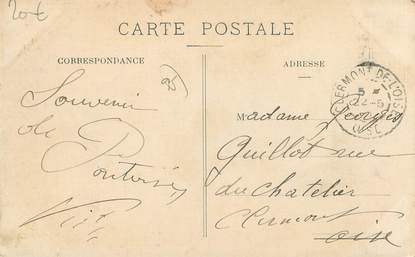 20€
CARTE POSTALE
CORRESPONDANCE
ADRESSE
95
Souvenir
de
Pontoise
CLERMONT DE L'OISE
5
22-5
Madame Georges
Guillot rue
du Chatelier
Clermont
Oise